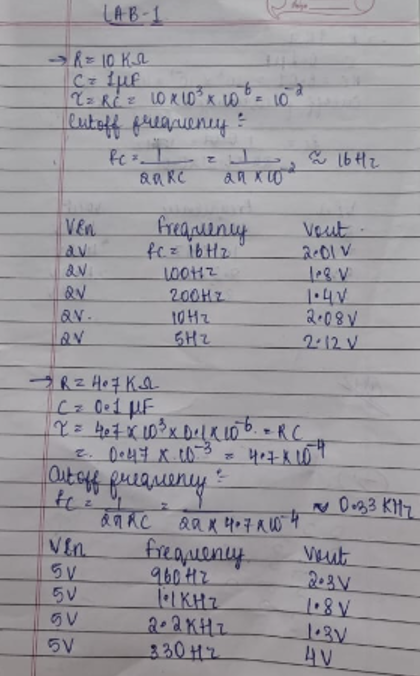 LAB-1
→ R = 10 KΩ
C = 1 μF
τ = RC = 10 × 10³ × 10⁻⁶ = 10⁻²
Cutoff frequency :-
fc = 1/2πRC = 1/2π × 10⁻² ≈ 16Hz
Vin Frequency Vout
2V fc = 16Hz 2.01V
2V 100Hz 1.8V
2V 200Hz 1.4V
2V. 10Hz 2.08V
2V 5Hz 2.12V
→ R = 4.7 KΩ
C = 0.1 μF
τ = 4.7 × 10³ × 0.1 × 10⁻⁶ = RC
= 0.47 × 10⁻³ = 4.7 × 10⁻⁴
Cutoff frequency :-
fc = 1/2πRC = 1/2π × 4.7 × 10⁻⁴ ≈ 0.33 KHz
Vin frequency Vout
5V 960Hz 2.3V
5V 1.1KHz 1.8V
5V 2.2KHz 1.3V
5V 330Hz 4V